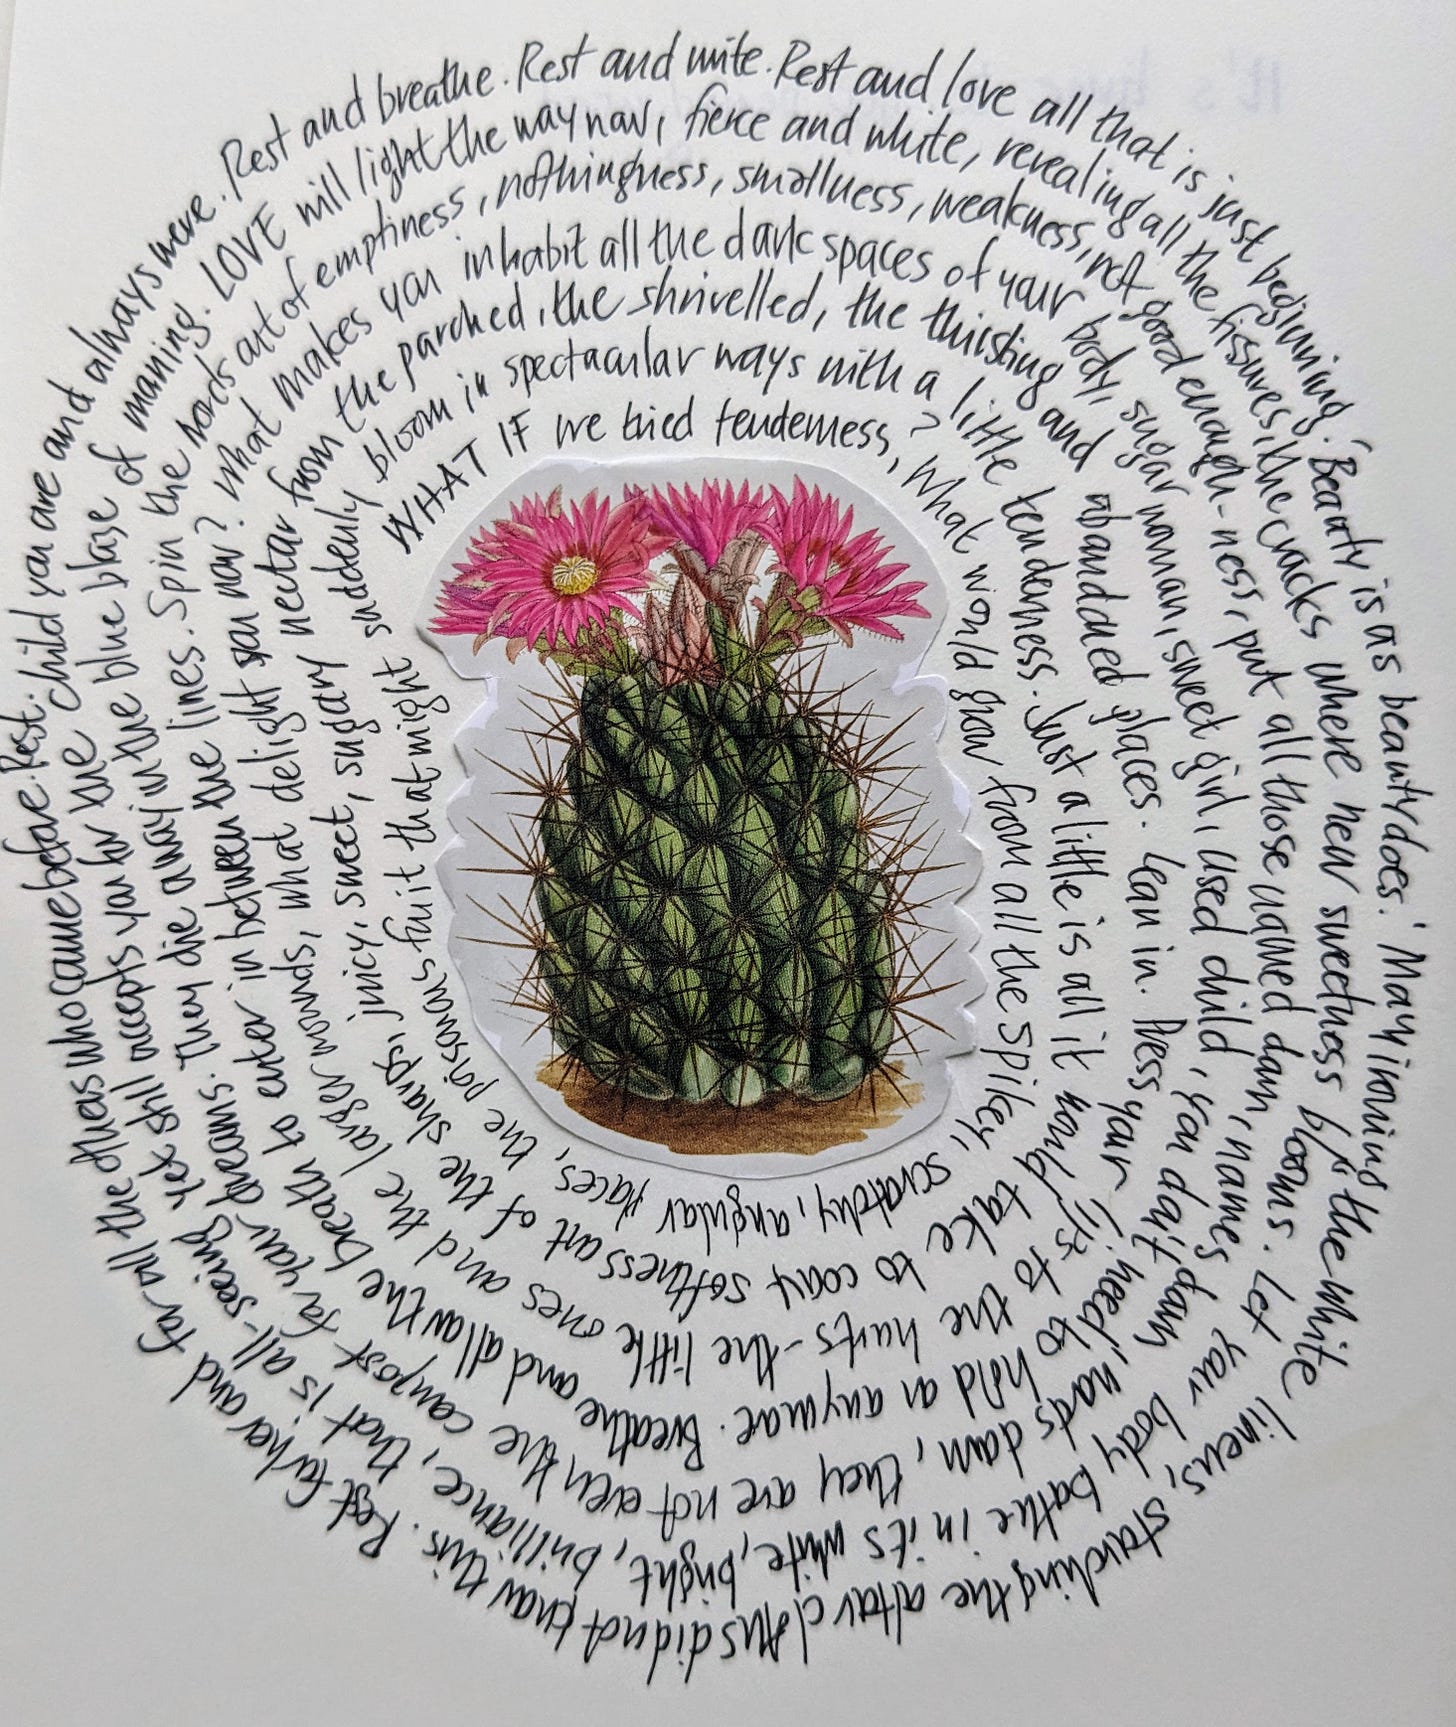 WHAT IF we tried tenderness,? What would grow from all the spikey, scratchy, angular places, the poisonous fruit that might
suddenly bloom in spectacular ways with a little tenderness. Just a little is all it would take to coax softness out of the sharps, juicy, sweet, sugary
nectar from the parched, the shrivelled, the thirsting and abandoned places. Lean in. Press your lips to the hurts - the little ones and the larger wounds, what delight you now?
what makes you inhabit all the dark spaces of your body, sugar woman, sweet girl, used child, you don't need to hold on anymore. Breathe and allow the breath to enter in between the lines.
Spin the words out of emptiness, nothingness, smallness, weakness, not good enough-ness, put all those named down, names down, words down, they are not even the compost for your dreams. They die away in the blue blaze of meaning.
LOVE will light the way now, fierce and white, revealing all the fissures, the cracks where new sweetness blooms. Let your body bathe in its white, bright, brilliance, that is all-seeing yet still accepts you for the child you are and always were.
Rest and breathe. Rest and write. Rest and love all that is just beginning. 'Beauty is as beauty does.' Mary ironing the White linens, starching the altar cloths did not know this. Rest for her and for all the others who came before. Rest. Rest.